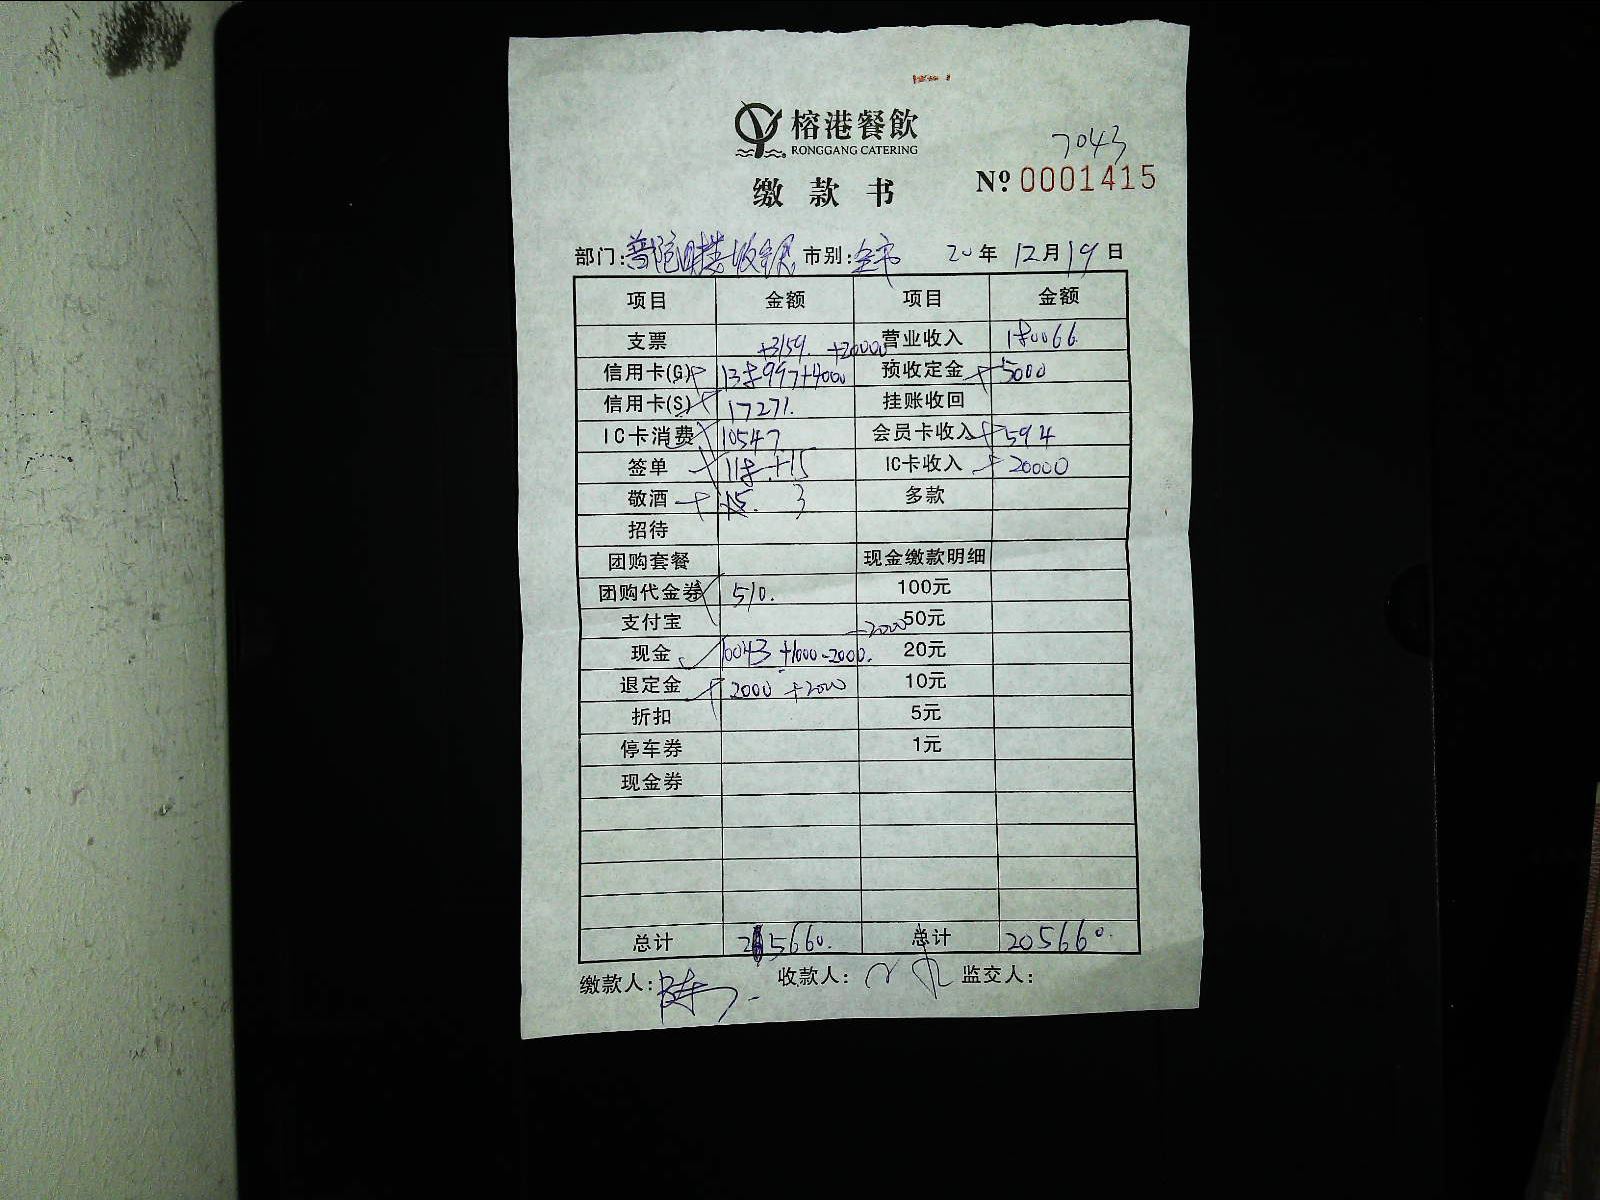 榕港餐飲
RONGGANG CATERING
7043
缴款书
Nº 0001415
部门: 普陀 收银 市别: 全市 20年 12月 19日
项目 金额 项目 金额
支票 营业收入 180066
+3159. +20000
信用卡(G) 138997+4000 预收定金 5000
信用卡(S) 17271. 挂账收回
IC卡消费 10547 会员卡收入 594
签单 118.+15 IC卡收入 20000
敬酒 15. 3 多款
招待
团购套餐 现金缴款明细
团购代金券 510. 100元
支付宝 50元
-2000
现金 6043+1000-2000. 20元
退定金 2000+2000 10元
折扣 5元
停车券 1元
现金券
总计 205660. 总计 205660.
缴款人: 收款人: 监交人: